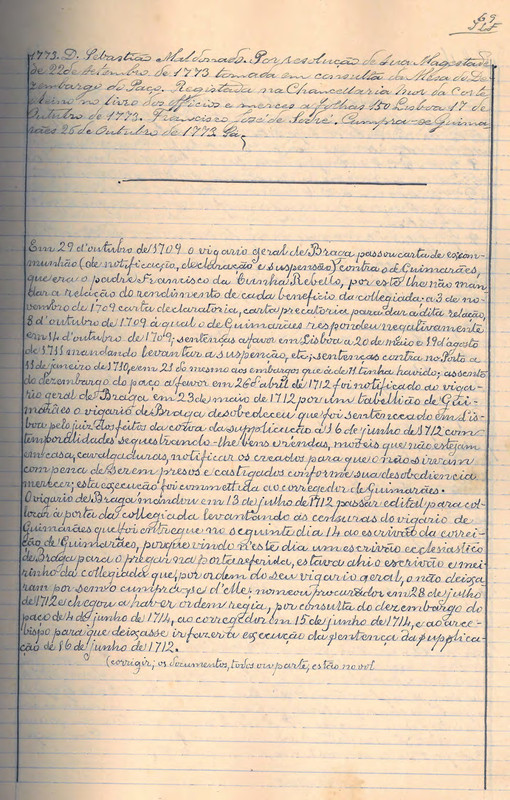 69
1773. D. Sebastião Maldonado. Por resolução de Sua Magestade
de 22 de setembro de 1773 tomada em consulta da Mesa do De-
zembargo do Paço. Registada na Chancellaria Mor da Corte
e reino no livro dos officios e mercês a folhas 150 Lisboa 17 de
Outubro de 1773. Francisco José de Sá. Cumpra-se Guima-
rães 26 de Outubro de 1773
Em 29 d'outubro de 1709 o vigario geral de Braga, passou carta de excom-
munhão (de notificação, declaração e suspensão) contra o de Guimarães,
que era o padre Francisco da Cunha Rebello, por este lhe não man-
dar a relação do rendimento de cada beneficio da collegiada: a 3 de no-
vembro de 1709 carta declaratoria, carta precatoria para dar a dita relação,
8 d'outubro de 1709 á qual o de Guimarães respondeu negativamente
em 14 d'outubro de 1709; sentenças a favor em Lisboa a 20 de maio e 19 d'agosto
de 1711 mandando levantar a suspenção, etc; sentenças contra no Porto a
11 de janeiro de 1710, e em 21 do mesmo aos embargos que á de 11 tinha havido; assento
do dezembargo do paço a favor em 26 d'abril de 1712 foi notificado ao viga-
rio geral de Braga em 23 de maio de 1712 por um tabellião de Gui-
marães o vigario de Braga desobedeceu que foi sentenceado em Lis-
boa pelo juiz dos feitos da corôa da supplicação a 16 de junho de 1712 com
temporalidades sequestrando-lhe bens e rendas, moveis que não estejam
em casa, cavalgaduras, notificar os creados para que o não sirvam
com pena de serem presos e castigados conforme sua desobediencia
merecer; esta execução foi commettida ao corregedor de Guimarães.
O vigario de Braga mandou em 13 de julho de 1712 passar edital para col-
locar á porta da collegiada levantando as censuras do vigario de
Guimarães que foi entregue no seguinte dia 14 ao escrivão da correi-
ção de Guimarães, porque vindo n'este dia um escrivão ecclesiastico
de Braga para o pregar na porta referida, estava ahi o escrivão e mei-
rinho da collegiada que, por ordem do seu vigario geral, o não deixa-
ram por sem o cumpra-se d'elle; nomeou procurador em 28 de julho
de 1712 e chegou a haver ordem regia, por consulta do dezembargo do
paço de 4 de junho de 1714, ao corregedor em 15 de junho de 1714, e ao arce-
bispo para que deixasse ir fazer a execução da sentença da supplica-
ção de 16 de junho de 1712.
(corrigir; os documentos, todos ou parte, estão no vol